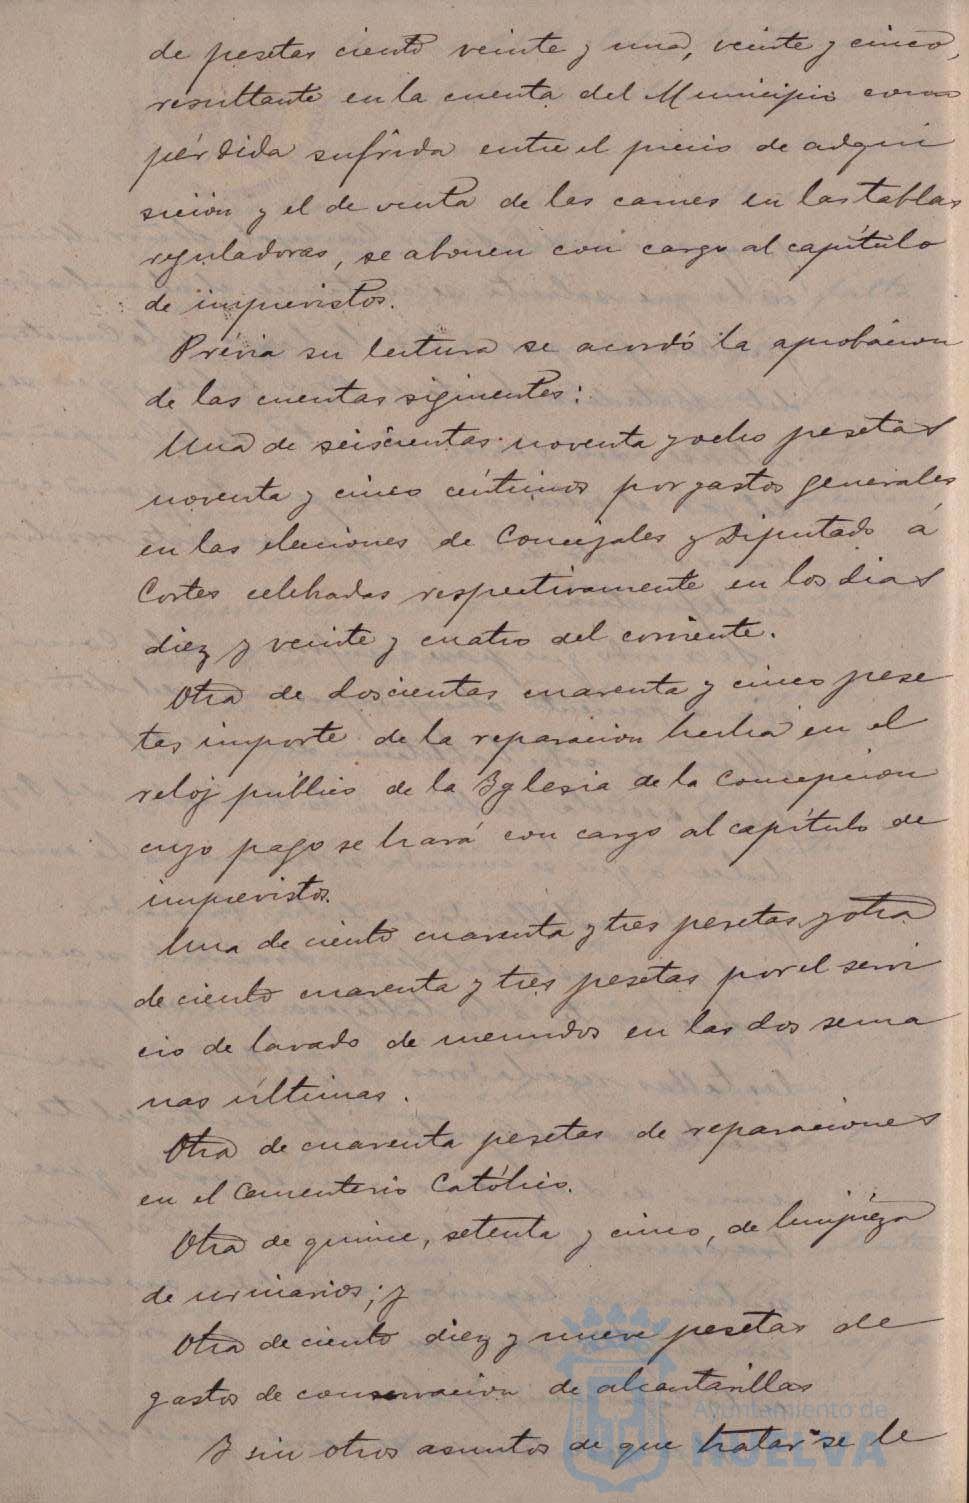 de pesetas ciento veinte y una, veinte y cinco,
resultante en la cuenta del Municipio como
pérdida sufrida entre el precio de adqui
sición y el de venta de las carnes en las tablas
reguladoras, se abonen con cargo al capítulo
de imprevistos.
Prévia su lectura se acordó la aprobacion
de las cuentas siguientes:
Una de seiscientas noventa y ocho pesetas
noventa y cinco céntimos por gastos generales
en las elecciones de Concejales y Diputado á
Cortes celebradas respectivamente en los dias
diez y veinte y cuatro del corriente.
Otra de doscientas cuarenta y cinco pese
tas importe de la reparacion hecha en el
reloj público de la Iglesia de la Concepcion
cuyo pago se hará con cargo al capítulo de
imprevistos.
Una de ciento cuarenta y tres pesetas y otra
de ciento cuarenta y tres pesetas por el servi
cio de lavado de menudos en las dos sema
nas últimas.
Otra de cuarenta pesetas de reparaciones
en el Cementerio Católico.
Otra de quince, setenta y cinco, de limpieza
de urinarios; y
Otra de ciento diez y nueve pesetas de
gastos de conservacion de alcantarillas
Y sin otros asuntos de que tratar se le
Ayuntamiento de
HUELVA